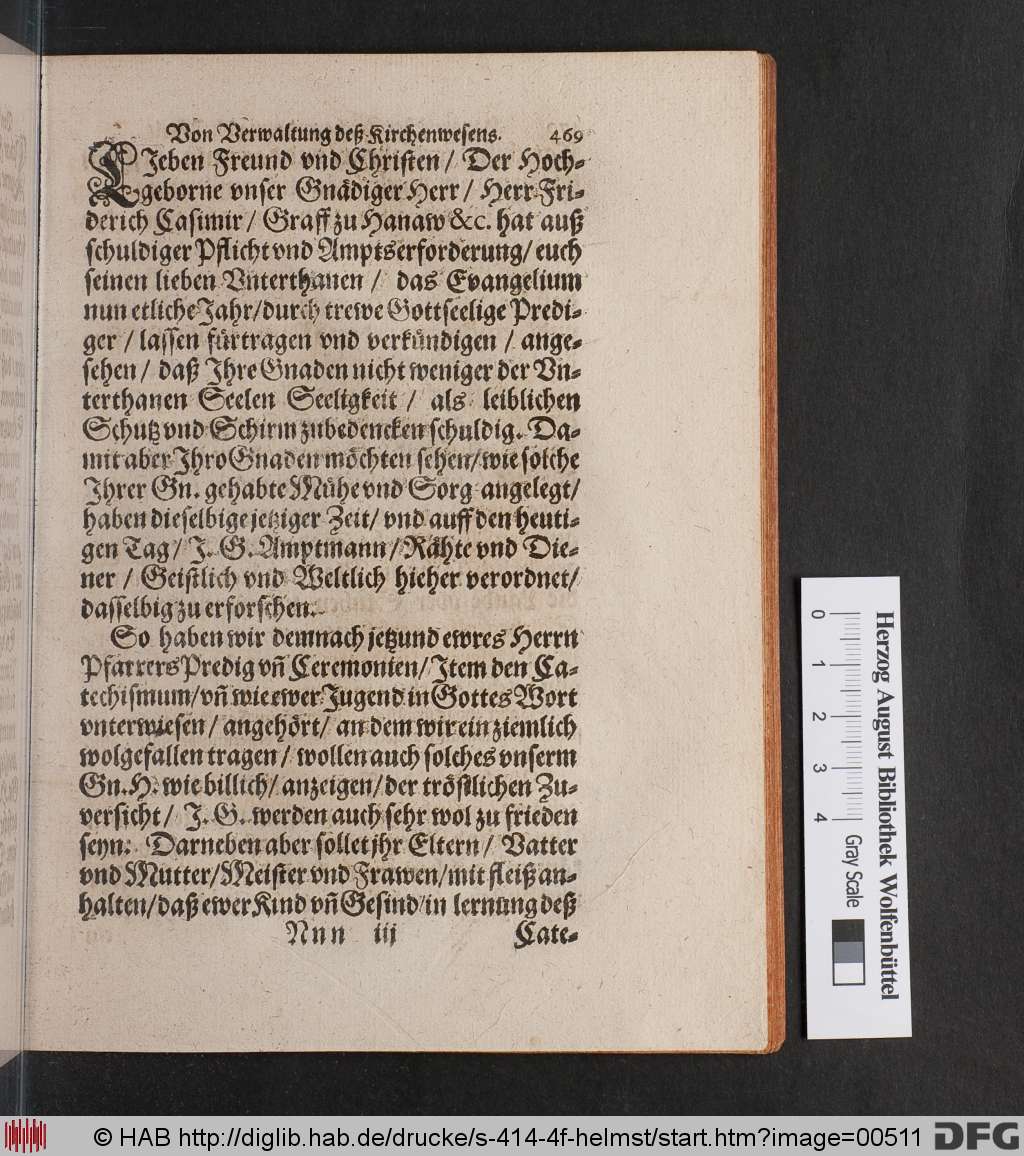 Von Verwaltung deß Kirchenwesens. 469
LIeben Freund vnd Christen / Der Hoch-
geborne vnser Gnädiger Herr / Herr Fri-
derich Casimir / Graff zu Hanaw &c. hat auß
schuldiger Pflicht vnd Amptserforderung / euch
seinen lieben Vnterthanen / das Evangelium
nun etliche Jahr / durch trewe Gottseelige Predi-
ger / lassen fürtragen vnd verkündigen / ange-
sehen / daß Ihre Gnaden nicht weniger der Vn-
terthanen Seelen Seeligkeit / als leiblichen
Schutz vnd Schirm zubedencken schuldig. Da-
mit aber Ihro Gnaden möchten sehen / wie solche
Ihrer Gn. gehabte Mühe vnd Sorg angelegt /
haben dieselbige jetziger Zeit / vnd auff den heuti-
gen Tag / J. G. Amptmann / Rähte vnd Die-
ner / Geistlich vnd Weltlich hieher verordnet /
dasselbig zu erforschen.
So haben wir demnach jetzund ewres Herrn
Pfarrers Predig vñ Ceremonien / Item den Ca-
techismum / vñ wie ewer Jugend in Gottes Wort
vnterwiesen / angehört / an dem wir ein ziemlich
wolgefallen tragen / wollen auch solches vnserm
Gn. H. wie billich / anzeigen / der tröstlichen Zu-
versicht / J. G. werden auch sehr wol zu frieden
seyn. Darneben aber sollet jhr Eltern / Vatter
vnd Mutter / Meister vnd Frawen / mit fleiß an-
halten / daß ewer Kind vñ Gesind / in lernung deß
Nnn iij Cate-
Herzog August Bibliothek Wolfenbüttel
0 1 2 3 4 Gray Scale
© HAB http://diglib.hab.de/drucke/s-414-4f-helmst/start.htm?image=00511 DFG